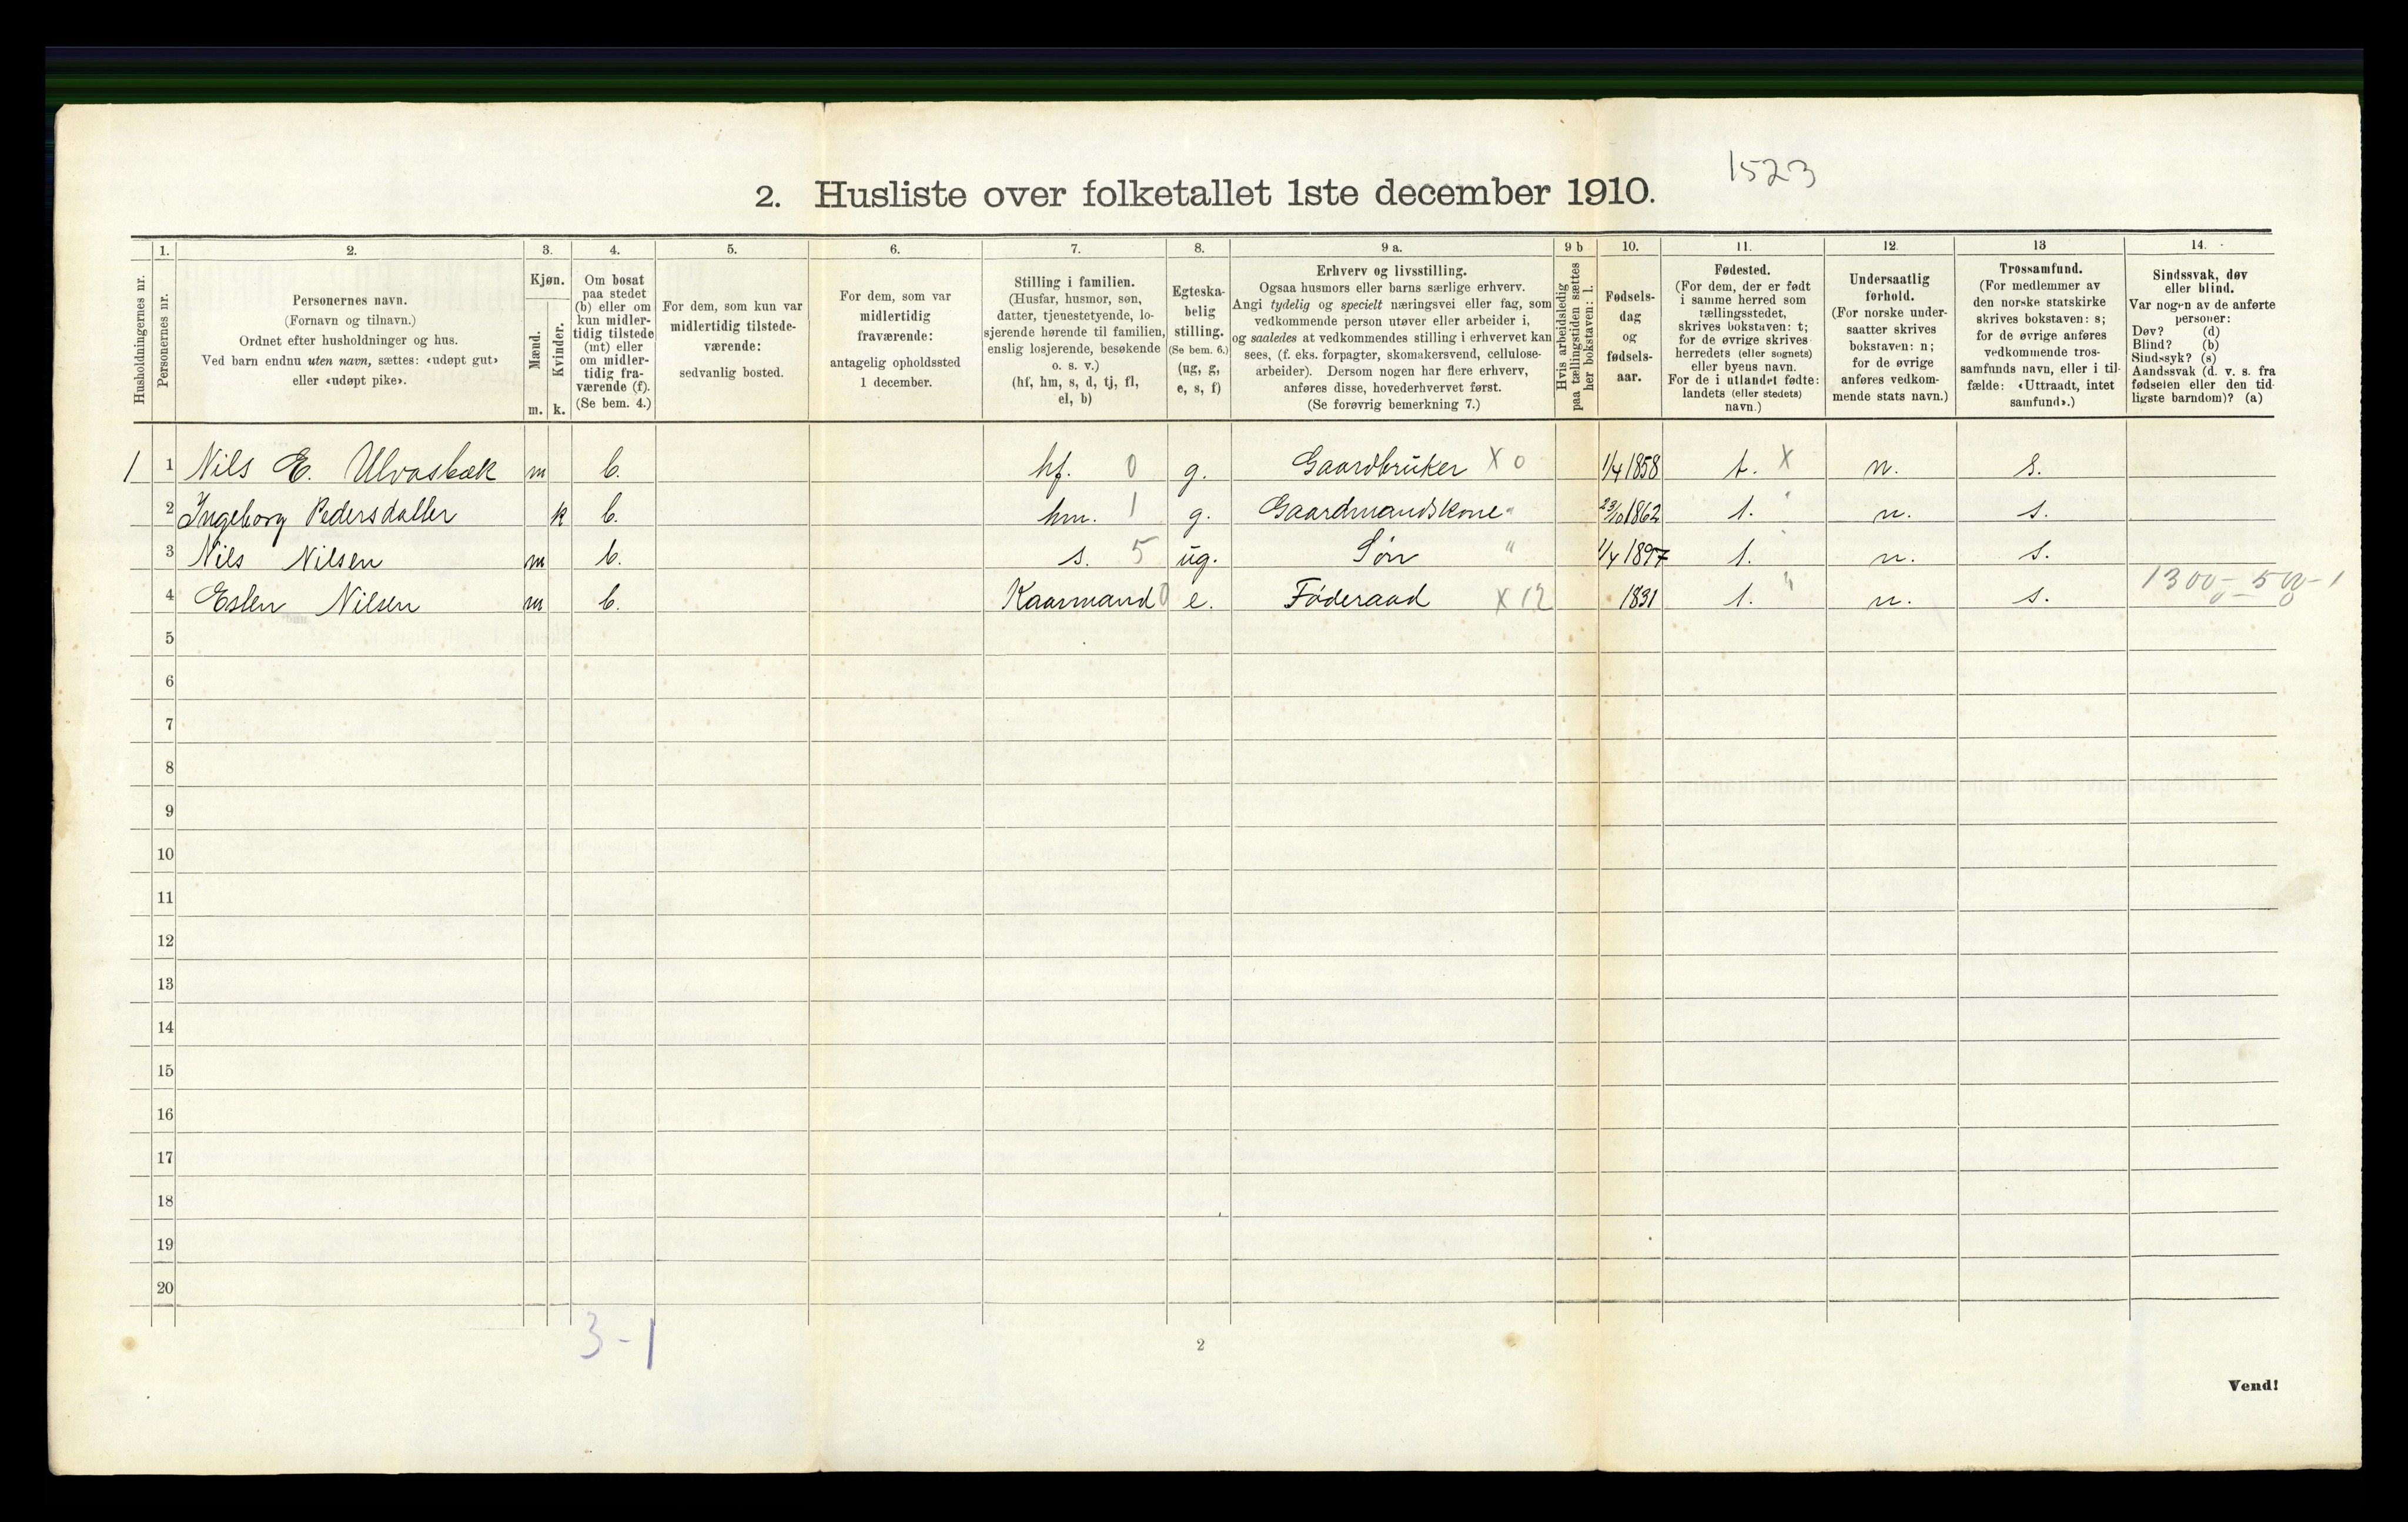 1523
2. Husliste over folketallet 1ste december 1910.
Husholdningernes nr.
1.
Personernes nr.
2.
Personernes navn.
(Fornavn og tilnavn.)
Ordnet efter husholdninger og hus.
Ved barn endnu uten navn, sættes: «udøpt gut»
eller «udøpt pike».
3.
Kjøn.
Mænd.
Kvinder.
m. k.
4.
Om bosat
paa stedet
(b) eller om
kun midler-
tidig tilstede
(mt) eller
om midler-
tidig fra-
værende (f).
(Se bem. 4.)
5.
For dem, som kun var
midlertidig tilstede-
værende:
sedvanlig bosted.
6.
For dem, som var
midlertidig
fraværende:
antagelig opholdssted
1 december.
7.
Stilling i familien.
(Husfar, husmor, søn,
datter, tjenestetyende, lo-
sjerende hørende til familien,
enslig losjerende, besøkende
o. s. v.)
(hf, hm, s, d, tj, fl,
el, b)
8.
Egteska-
belig
stilling.
(Se bem. 6.)
(ug, g,
e, s, f)
9 a.
Erhverv og livsstilling.
Ogsaa husmors eller barns særlige erhverv.
Angi tydelig og specielt næringsvei eller fag, som
vedkommende person utøver eller arbeider i,
og saaledes at vedkommendes stilling i erhvervet kan
sees, (f. eks. forpagter, skomakersvend, cellulose-
arbeider). Dersom nogen har flere erhverv,
anføres disse, hovederhvervet først.
(Se forøvrig bemerkning 7.)
9 b
Hvis arbeidsledig
paa tællingstiden sættes
her bokstaven: l.
10.
Fødsels-
dag
og
fødsels-
aar.
11.
Fødested.
(For dem, der er født
i samme herred som
tællingsstedet,
skrives bokstaven: t;
for de øvrige skrives
herredets (eller sognets)
eller byens navn.
For de i utlandet fødte:
landets (eller stedets)
navn.)
12.
Undersaatlig
forhold.
(For norske under-
saatter skrives
bokstaven: n;
for de øvrige
anføres vedkom-
mende stats navn.)
13
Trossamfund.
(For medlemmer av
den norske statskirke
skrives bokstaven: s;
for de øvrige anføres
vedkommende tros-
samfunds navn, eller i til-
fælde: «Uttraadt, intet
samfund».)
14.
Sindssvak, døv
eller blind.
Var nogen av de anførte
personer:
Døv? (d)
Blind? (b)
Sindssyk? (s)
Aandssvak (d. v. s. fra
fødselen eller den tid-
ligste barndom)? (a)
1 1 Nils E. Ulvasbæk m b. hf. 0 g. Gaardbruker X 0 1/4 1858 t. X n. s.
2 Ingeborg Pedersdatter k b. hm. 1 g. Gaardmandskone " 23/10 1862 t. " n. s.
3 Nils Nilsen m b. s. 5 ug. Søn " 1/4 1897 t. " n. s.
4 Eslen Nilsen m b. Kaarmand 0 e. Føderaad X 12 1831 t. " n. s. 1300 - 500 - 1
5
6
7
8
9
10
11
12
13
14
15
16
17
18
19
20
3 - 1
2
Vend!